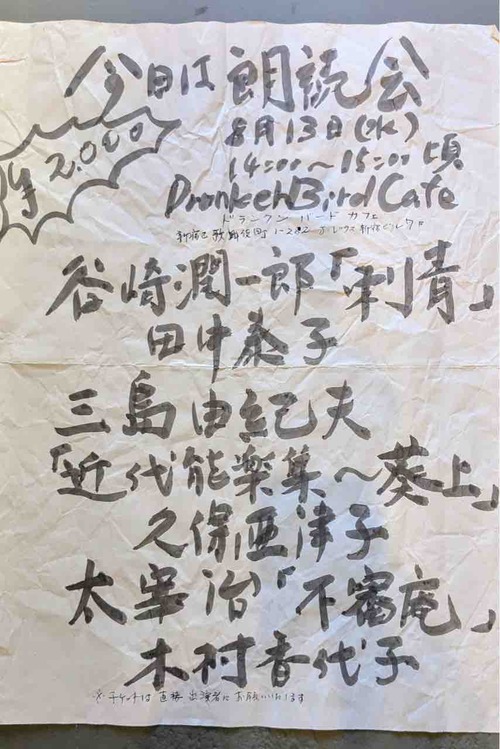 今日は朗読会
¥2,000
8月13日(水)
14:00〜15:00頃
Drunken Bird Cafe
ドランクン バード カフェ
新宿区歌舞伎町
谷崎潤一郎「刺青」
田中泰子
三島由紀夫
「近代能楽集〜葵上」
久保亜津子
太宰治「不審庵」
木村香代子
※チケットは直接出演者にお願いいたします